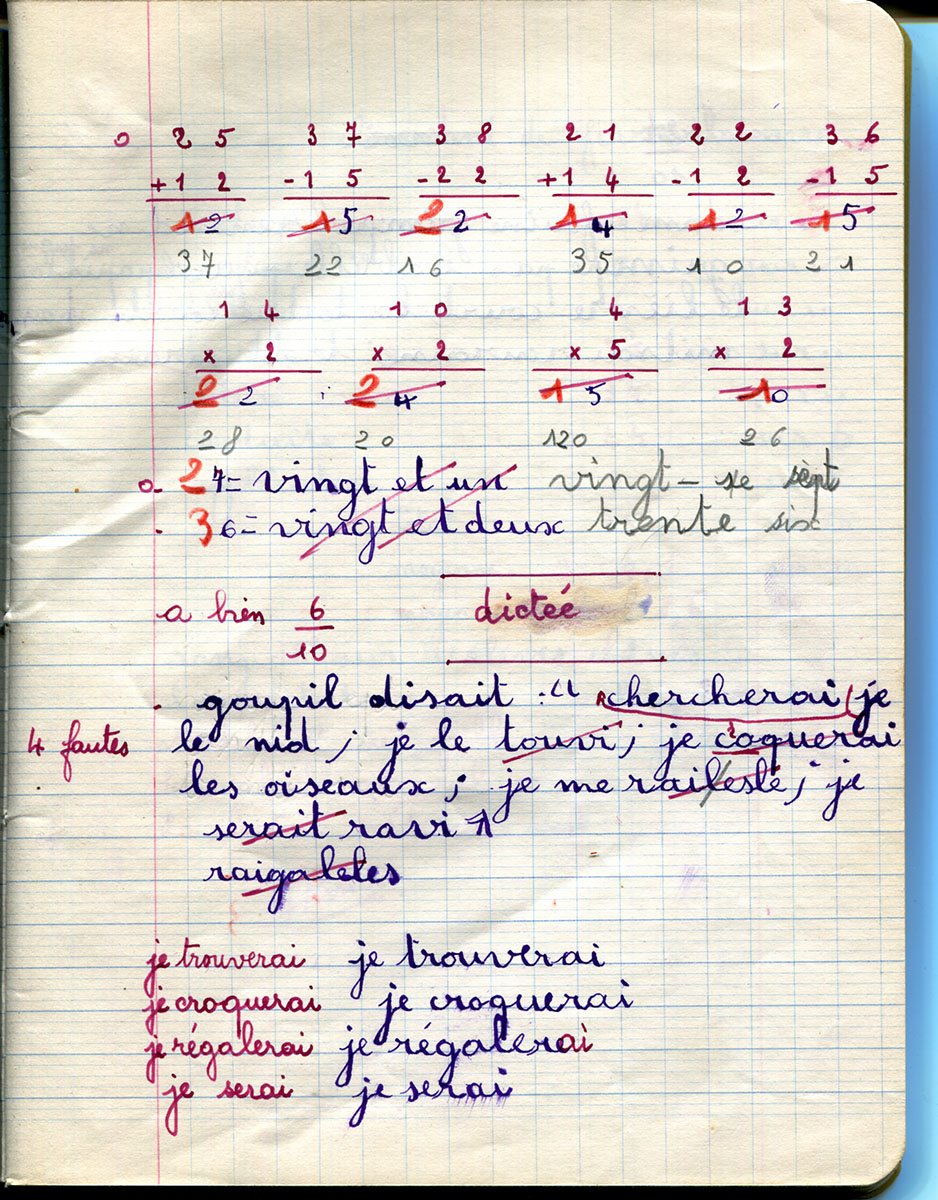 0 25 37 38 21 22 36
+12 -15 -22 +14 -12 -15
12 15 22 14 12 15
37 22 16 35 10 21
14 10 4 13
x 2 x 2 x 5 x 2
22 24 15 10
28 20 120 26
0- 27= vingt et un vingt - sept
- 36= vingt et deux trente six
a bien 6/10 dictée
- goupil disait : " chercherai je
4 fautes le nid ; je le touvi ; je coquerai
les oiseaux ; je me railesté ; je
serait ravi "
raigaletes
je trouverai je trouverai
je croquerai je croquerai
je régalerai je régalerai
je serai je serai